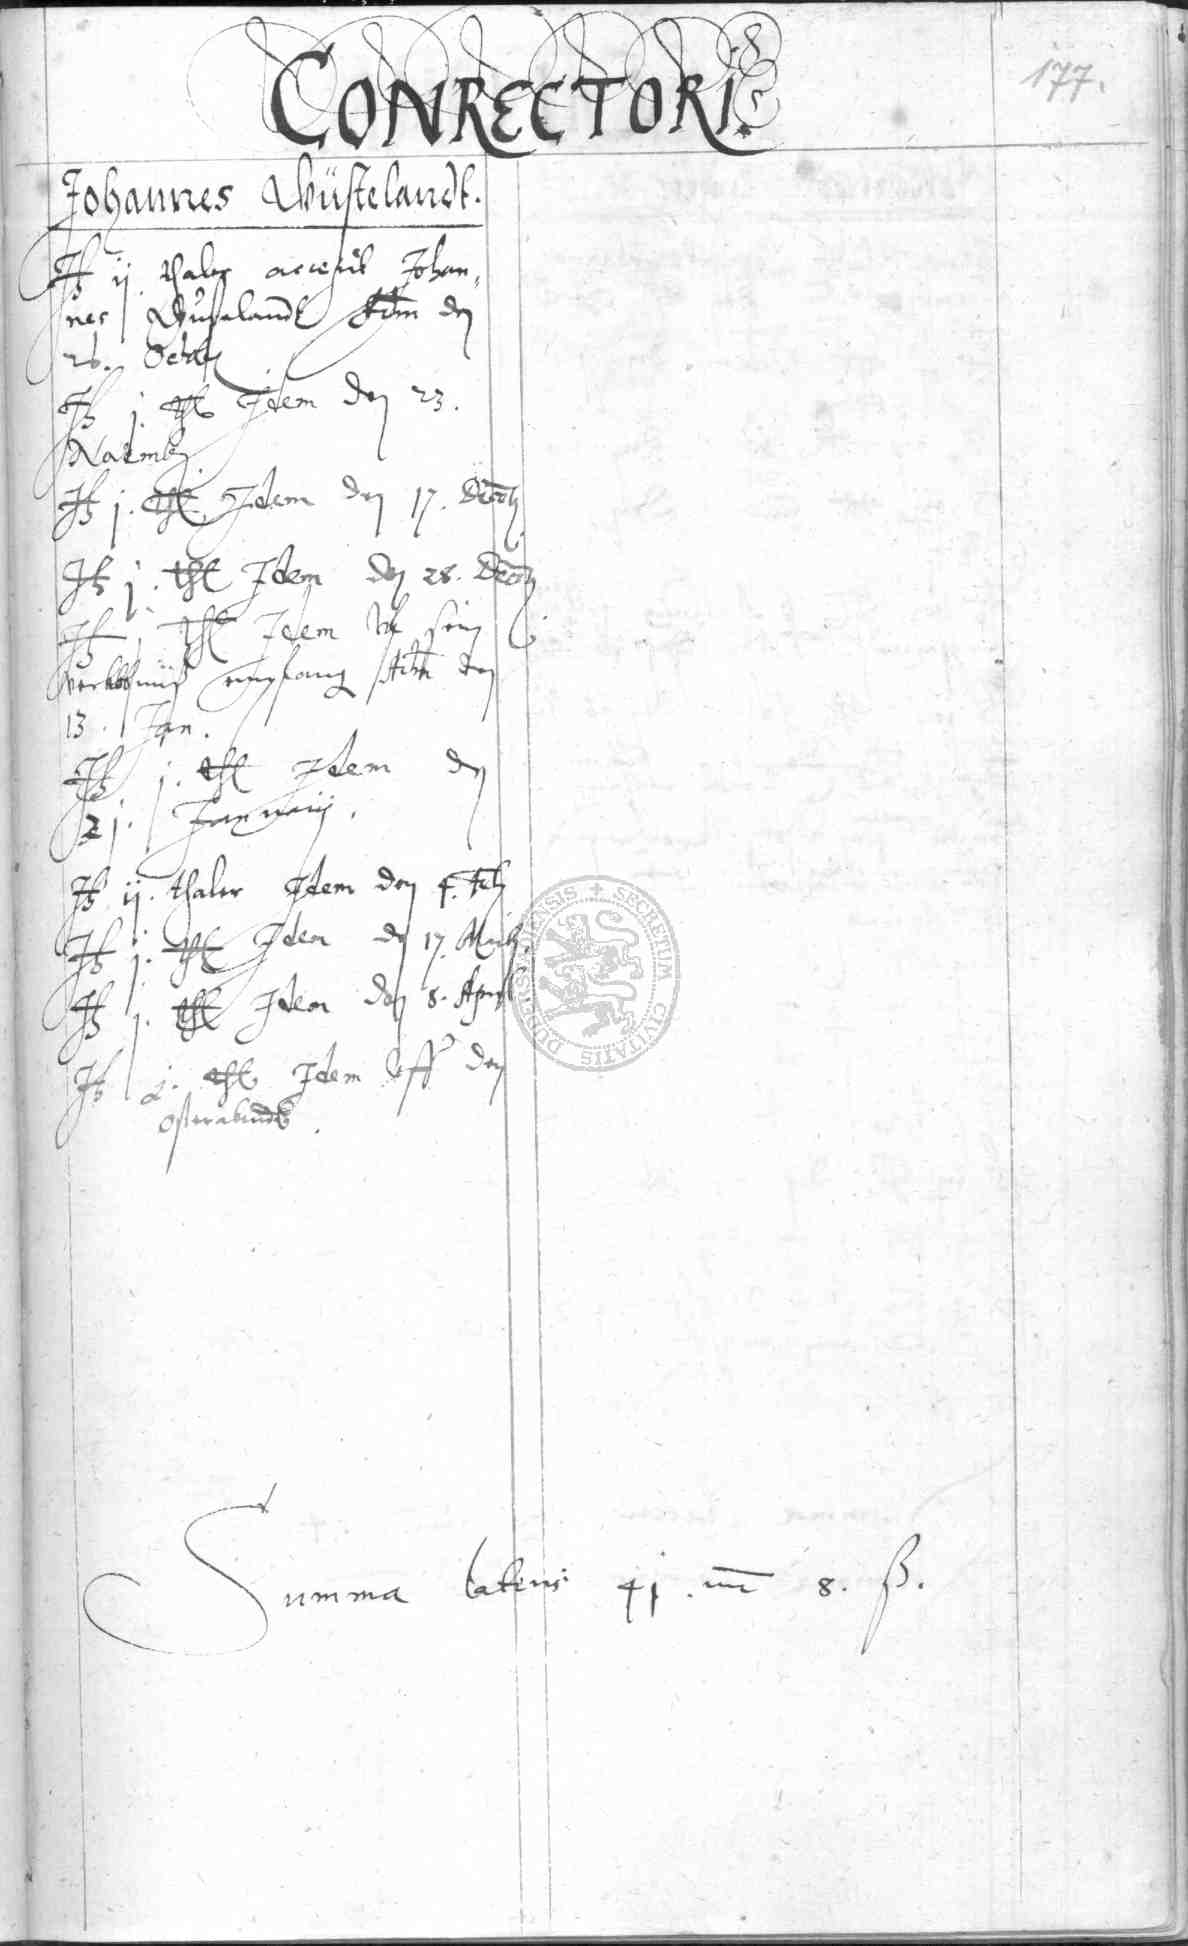 CONRECTORI.
177.
Johannes Wüstelandt.
It ij. thaler accepit Johan,
nes Wüstelandt den
26. Octob
It j. thl Idem den 23.
Nouemb
It j. thl Idem den 17. Decēb
It j. thl Idem den 28. Decēb
It j. thl Idem sein
empfang den
13. Jan.
It j. thl Idem den
2j. Januarij.
It ij. thaler Idem den 4. Feb
It j. thl Idem den 17. Martij
It j. thl Idem den 8. April
It j. thl Idem vff den
Osterabendt.
SECRETUM CIVITATIS
Summa lateris 41. mr 8. ß.